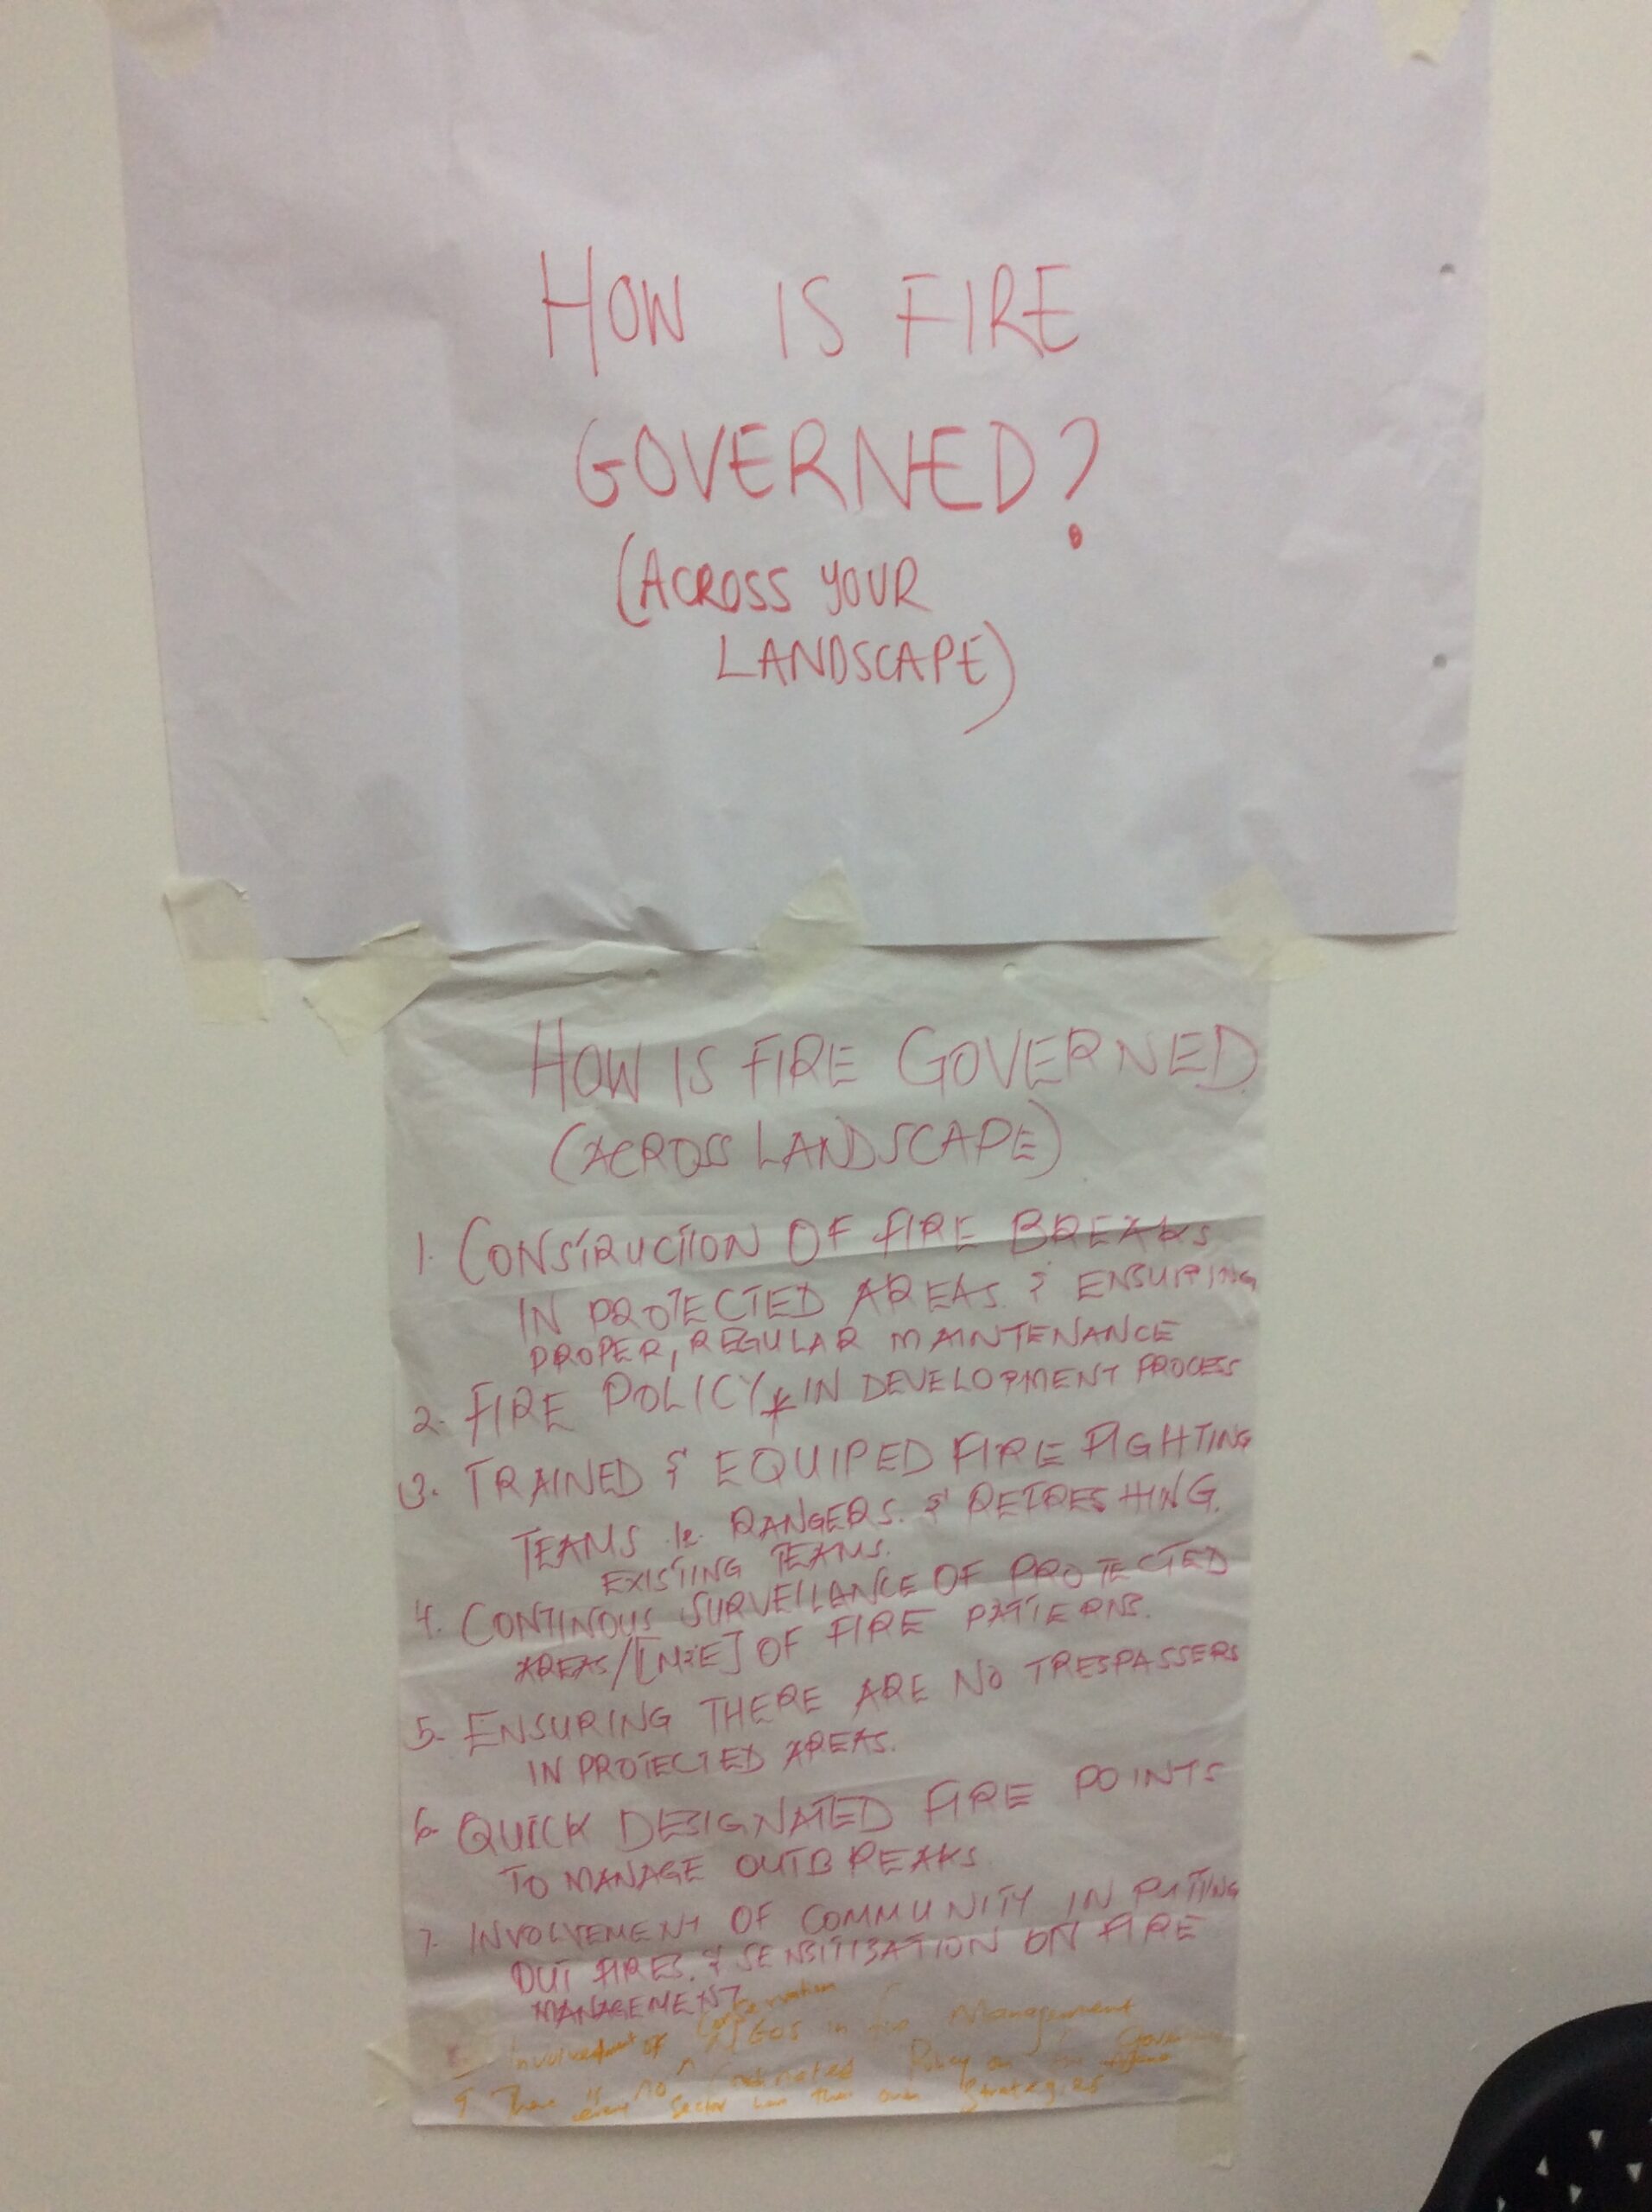 HOW IS FIRE
GOVERNED?
(ACROSS YOUR
LANDSCAPE)
HOW IS FIRE GOVERNED.
(ACROSS LANDSCAPE)
1. CONSTRUCTION OF FIRE BREAKS
IN PROTECTED AREAS & ENSURING
PROPER, REGULAR MAINTENANCE
2. FIRE POLICY * IN DEVELOPMENT PROCESS
3. TRAINED & EQUIPED FIRE FIGHTING
TEAMS ie. RANGERS. & REFRESHING.
EXISTING TEAMS.
4. CONTINOUS SURVEILLANCE OF PROTECTED
AREAS/[M&E] OF FIRE PATTERNS.
5. ENSURING THERE ARE NO TRESPASSERS
IN PROTECTED AREAS.
6. QUICK DESIGNATED FIRE POINTS
TO MANAGE OUTBREAKS
7. INVOLVEMENT OF COMMUNITY IN PUTTING
OUT FIRES. & SENSITISATION ON FIRE
MANAGEMENT
Conservation
Involvement of NGOs in Management
9 There is no Policy on
every Sector their own Strategies